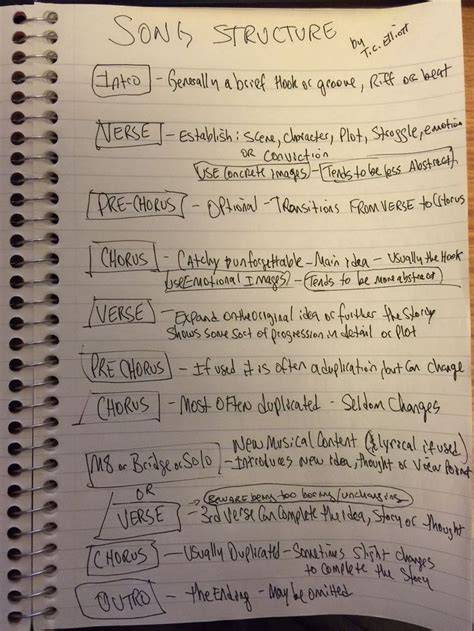 SONG STRUCTURE by T.C. Elliott
Intro - Generally a brief Hook or groove, Riff or beat
VERSE - Establish: Scene, character, Plot, Struggle, emotion
OR Conviction
USE Concrete images - Tends to be less Abstract
PRE-CHORUS - Optional - Transitions FROM VERSE to Chorus
CHORUS - Catchy & unforgettable - Main idea - Usually the Hook
use Emotional Images - Tends to be more abstract
VERSE - Expand on the original idea or further the Story
Shows some sort of progression in detail or Plot
PRE CHORUS - If used it is often a duplication, but Can change
CHORUS - Most Often duplicated - Seldom Changes
New Musical Content (& lyrical if used)
M8 or Bridge or Solo - Introduces New idea, thought or View Point
OR
Beware being too boring/unchanging
VERSE - 3rd Verse Can Complete the idea, Story or thought
CHORUS - Usually Duplicated - Sometimes Slight changes
to complete the Story
OUTRO - the Ending - May be omitted